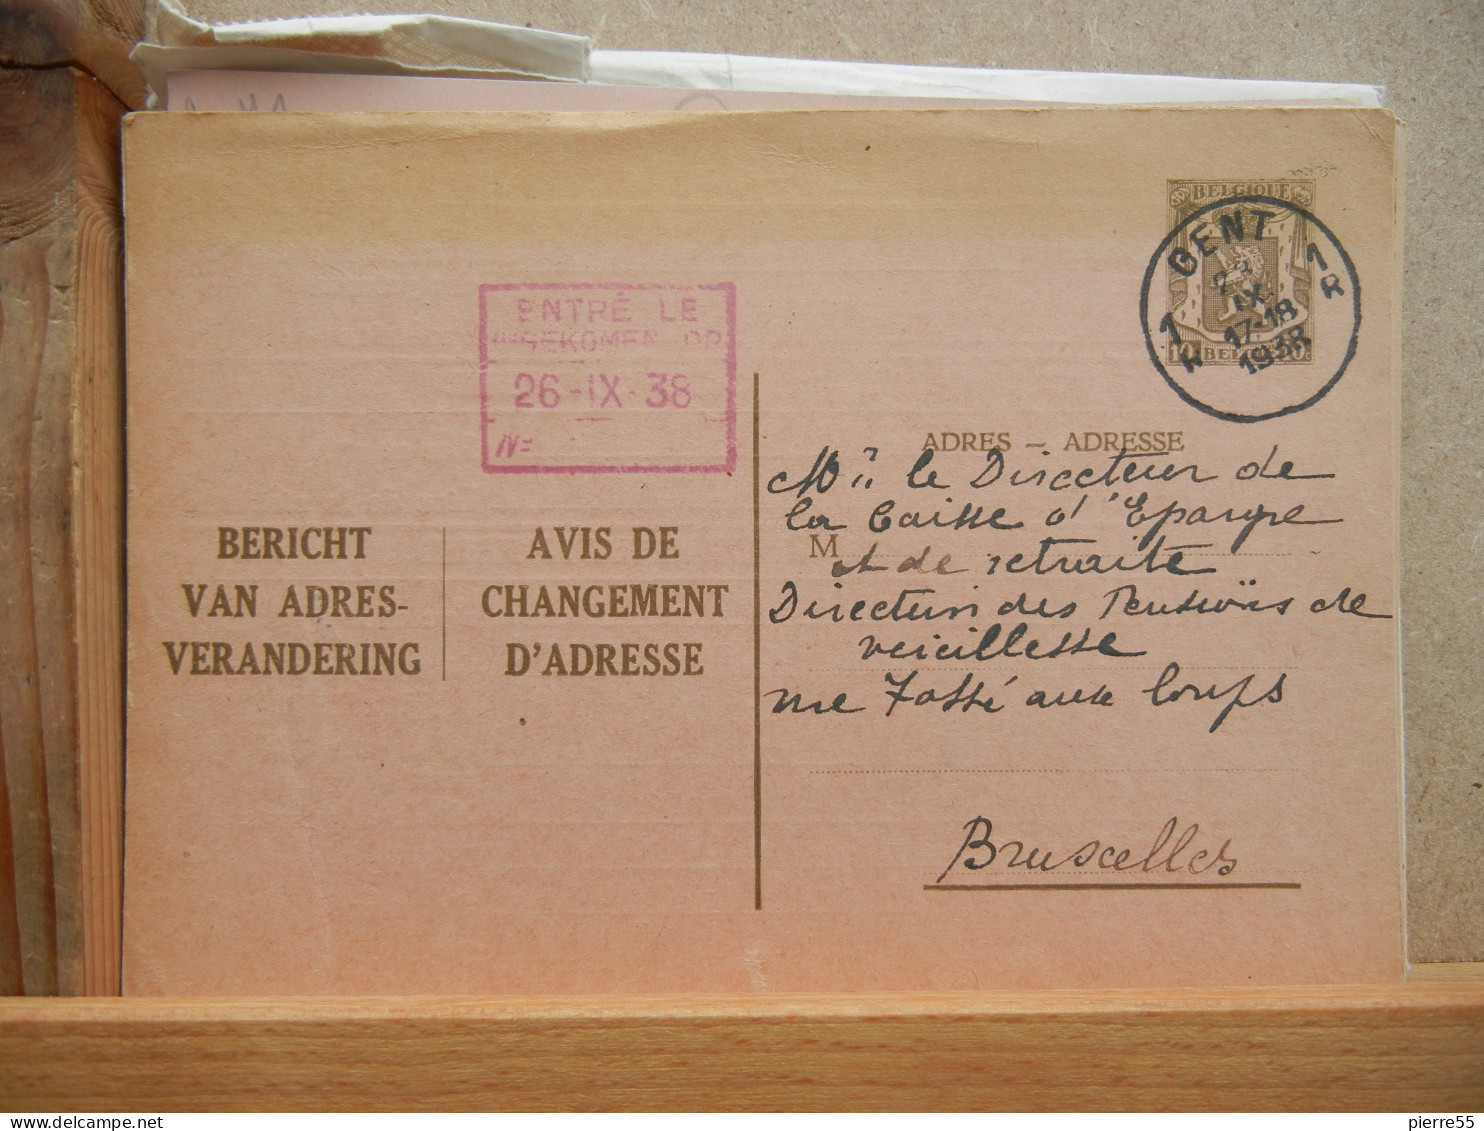 BELGIQUE
GENT
1 1
IX
17-18
1938
R
10
ENTRÉ LE
INGEKOMEN OP
26-IX-38
N=
ADRES – ADRESSE
le Directeur de
la Caisse d'Epargne
M et de retraite
Direction des Pensions de
vieillesse
rue Fossé aux loups
Bruxelles
BERICHT
VAN ADRES-
VERANDERING
AVIS DE
CHANGEMENT
D'ADRESSE
delcampe.net
pierre55